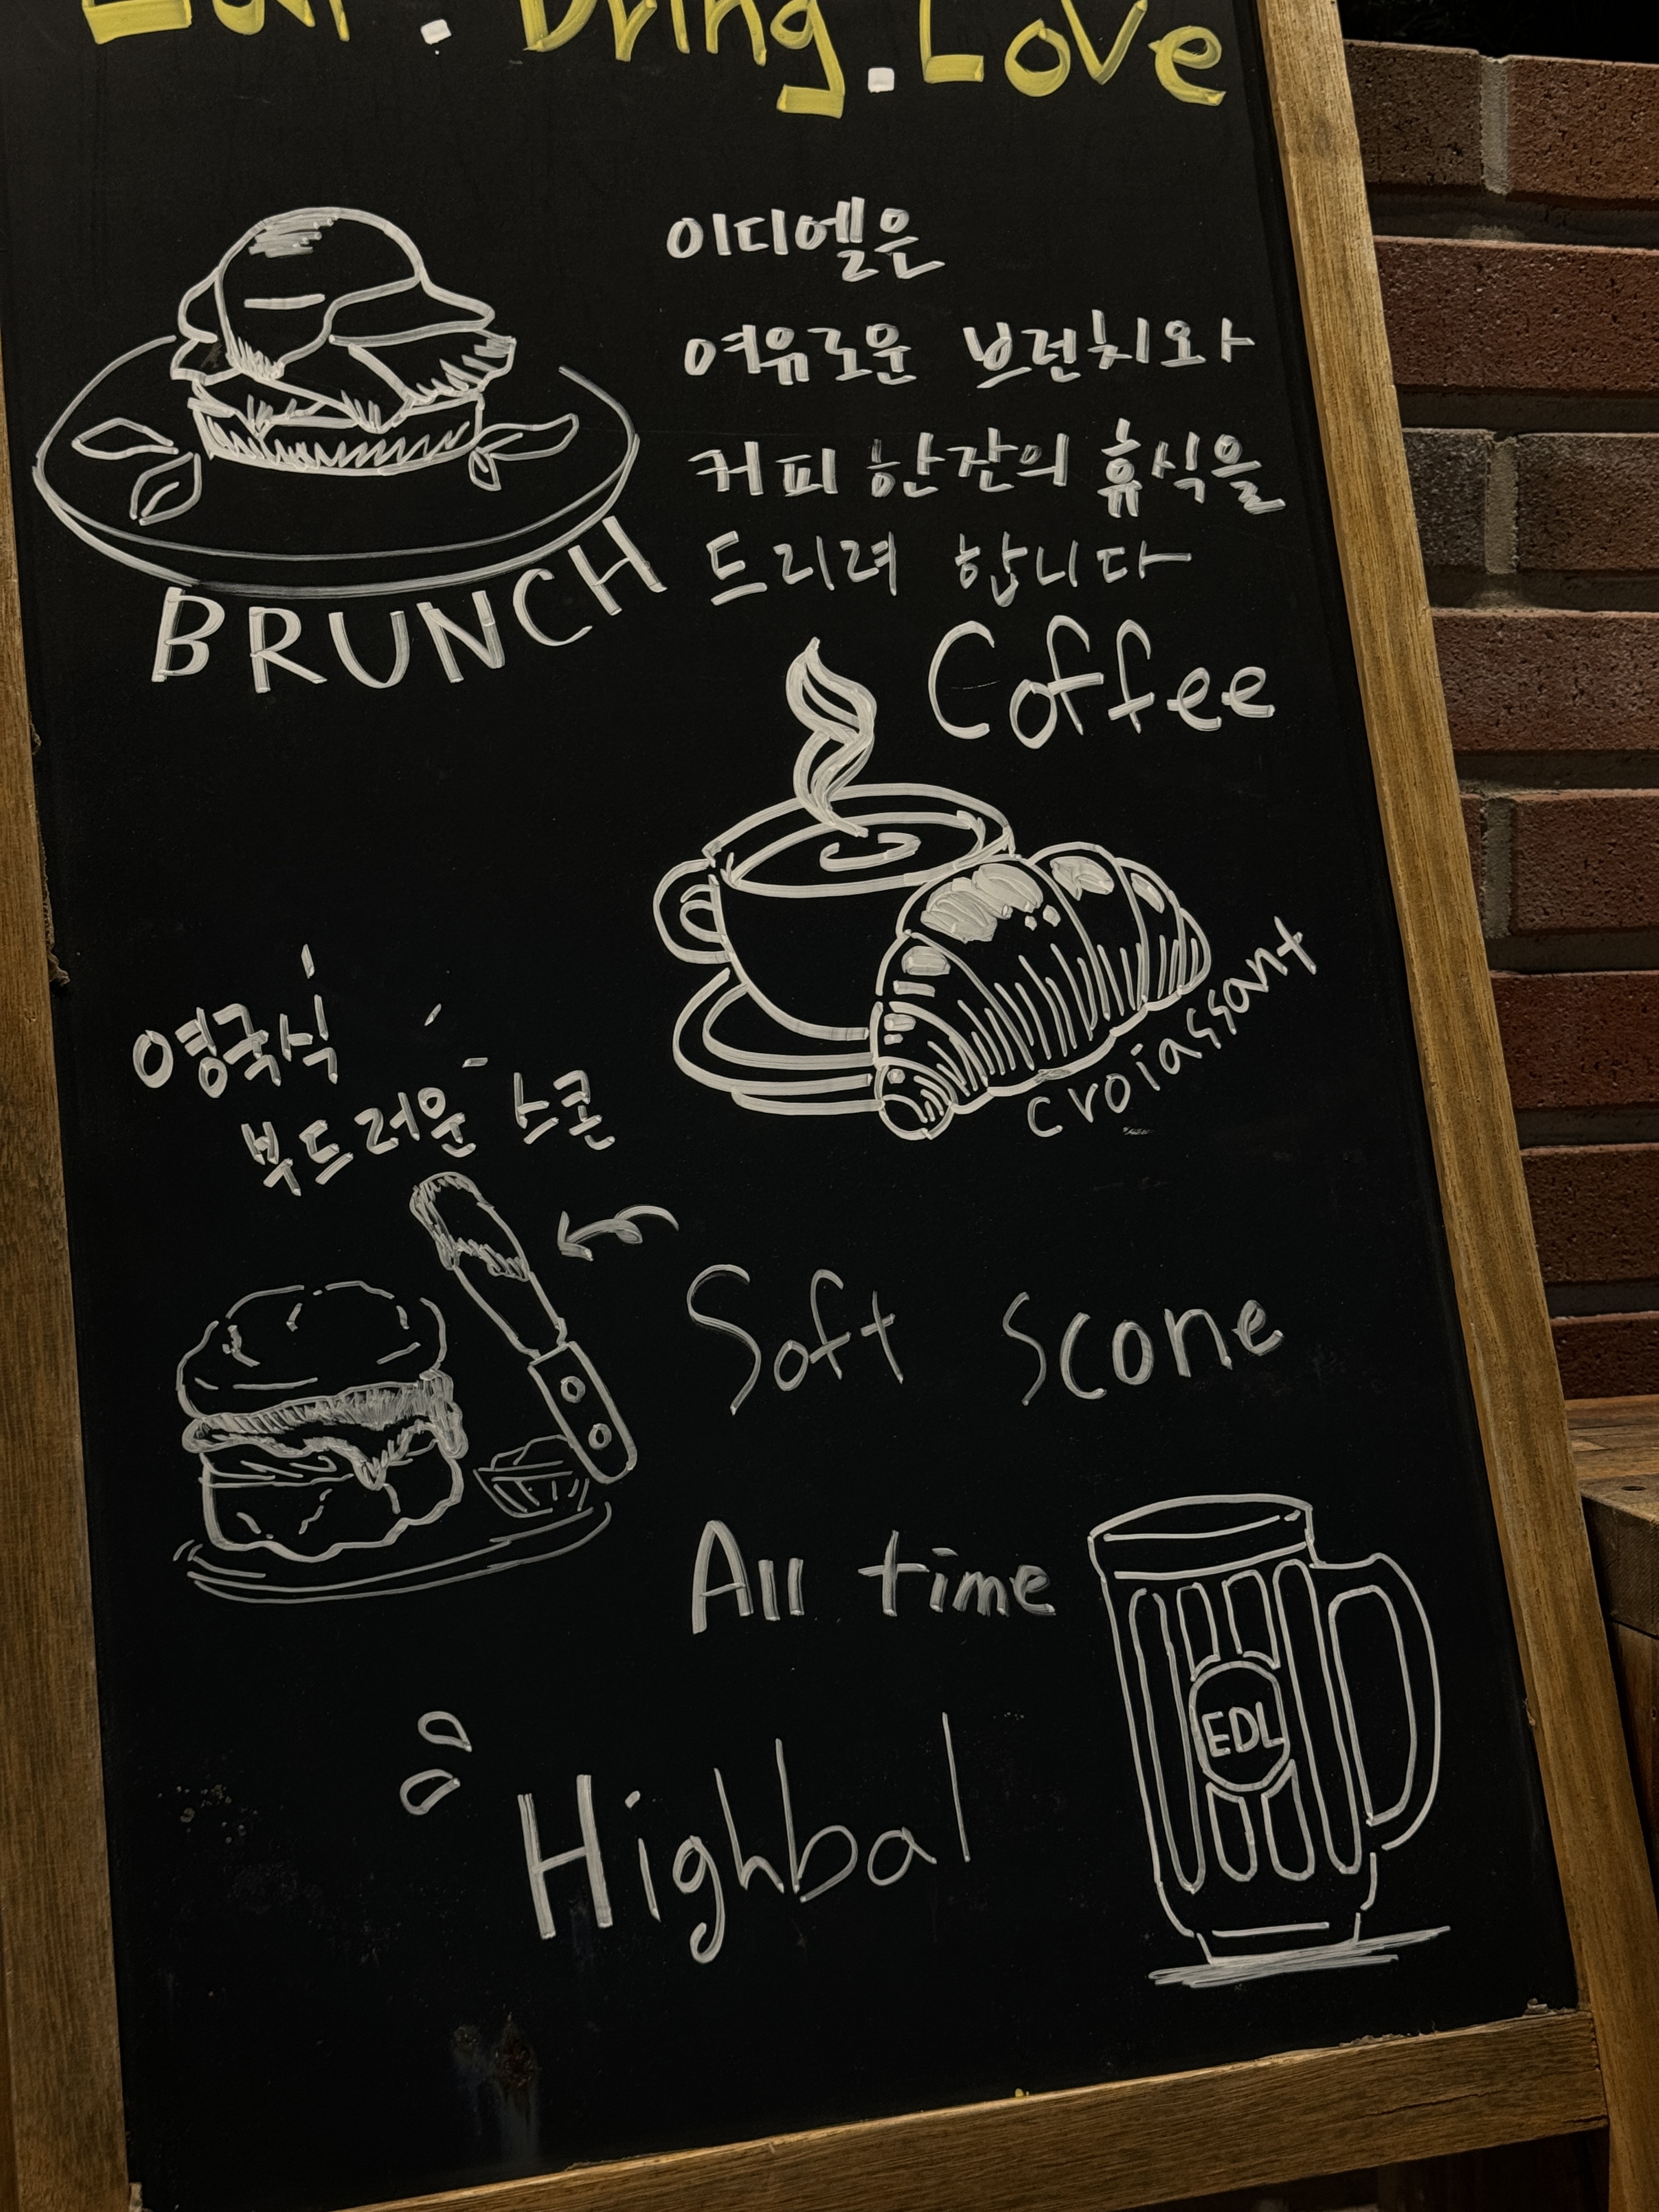 Eat . Dring . Love
이디엘은
여유로운 브런치와
커피 한잔의 휴식을
드리려 합니다
BRUNCH
Coffee
croiassant
영국식
부드러운 스콘
Soft scone
All time
EDL
Highbal